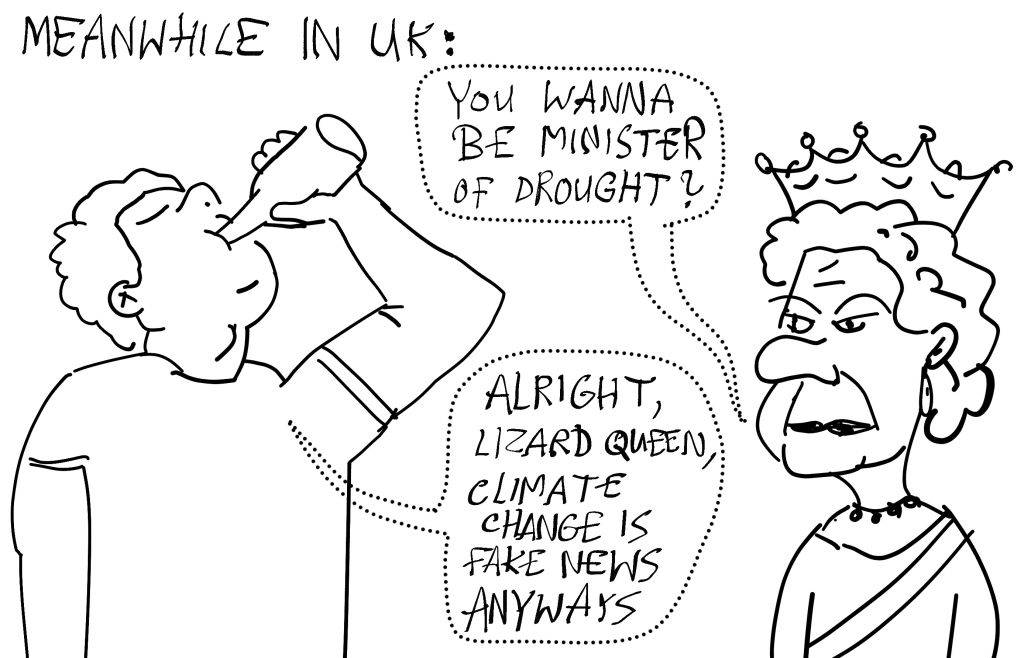 MEANWHILE IN UK:
YOU WANNA
BE MINISTER
OF DROUGHT?
ALRIGHT,
LIZARD QUEEN,
CLIMATE
CHANGE IS
FAKE NEWS
ANYWAYS